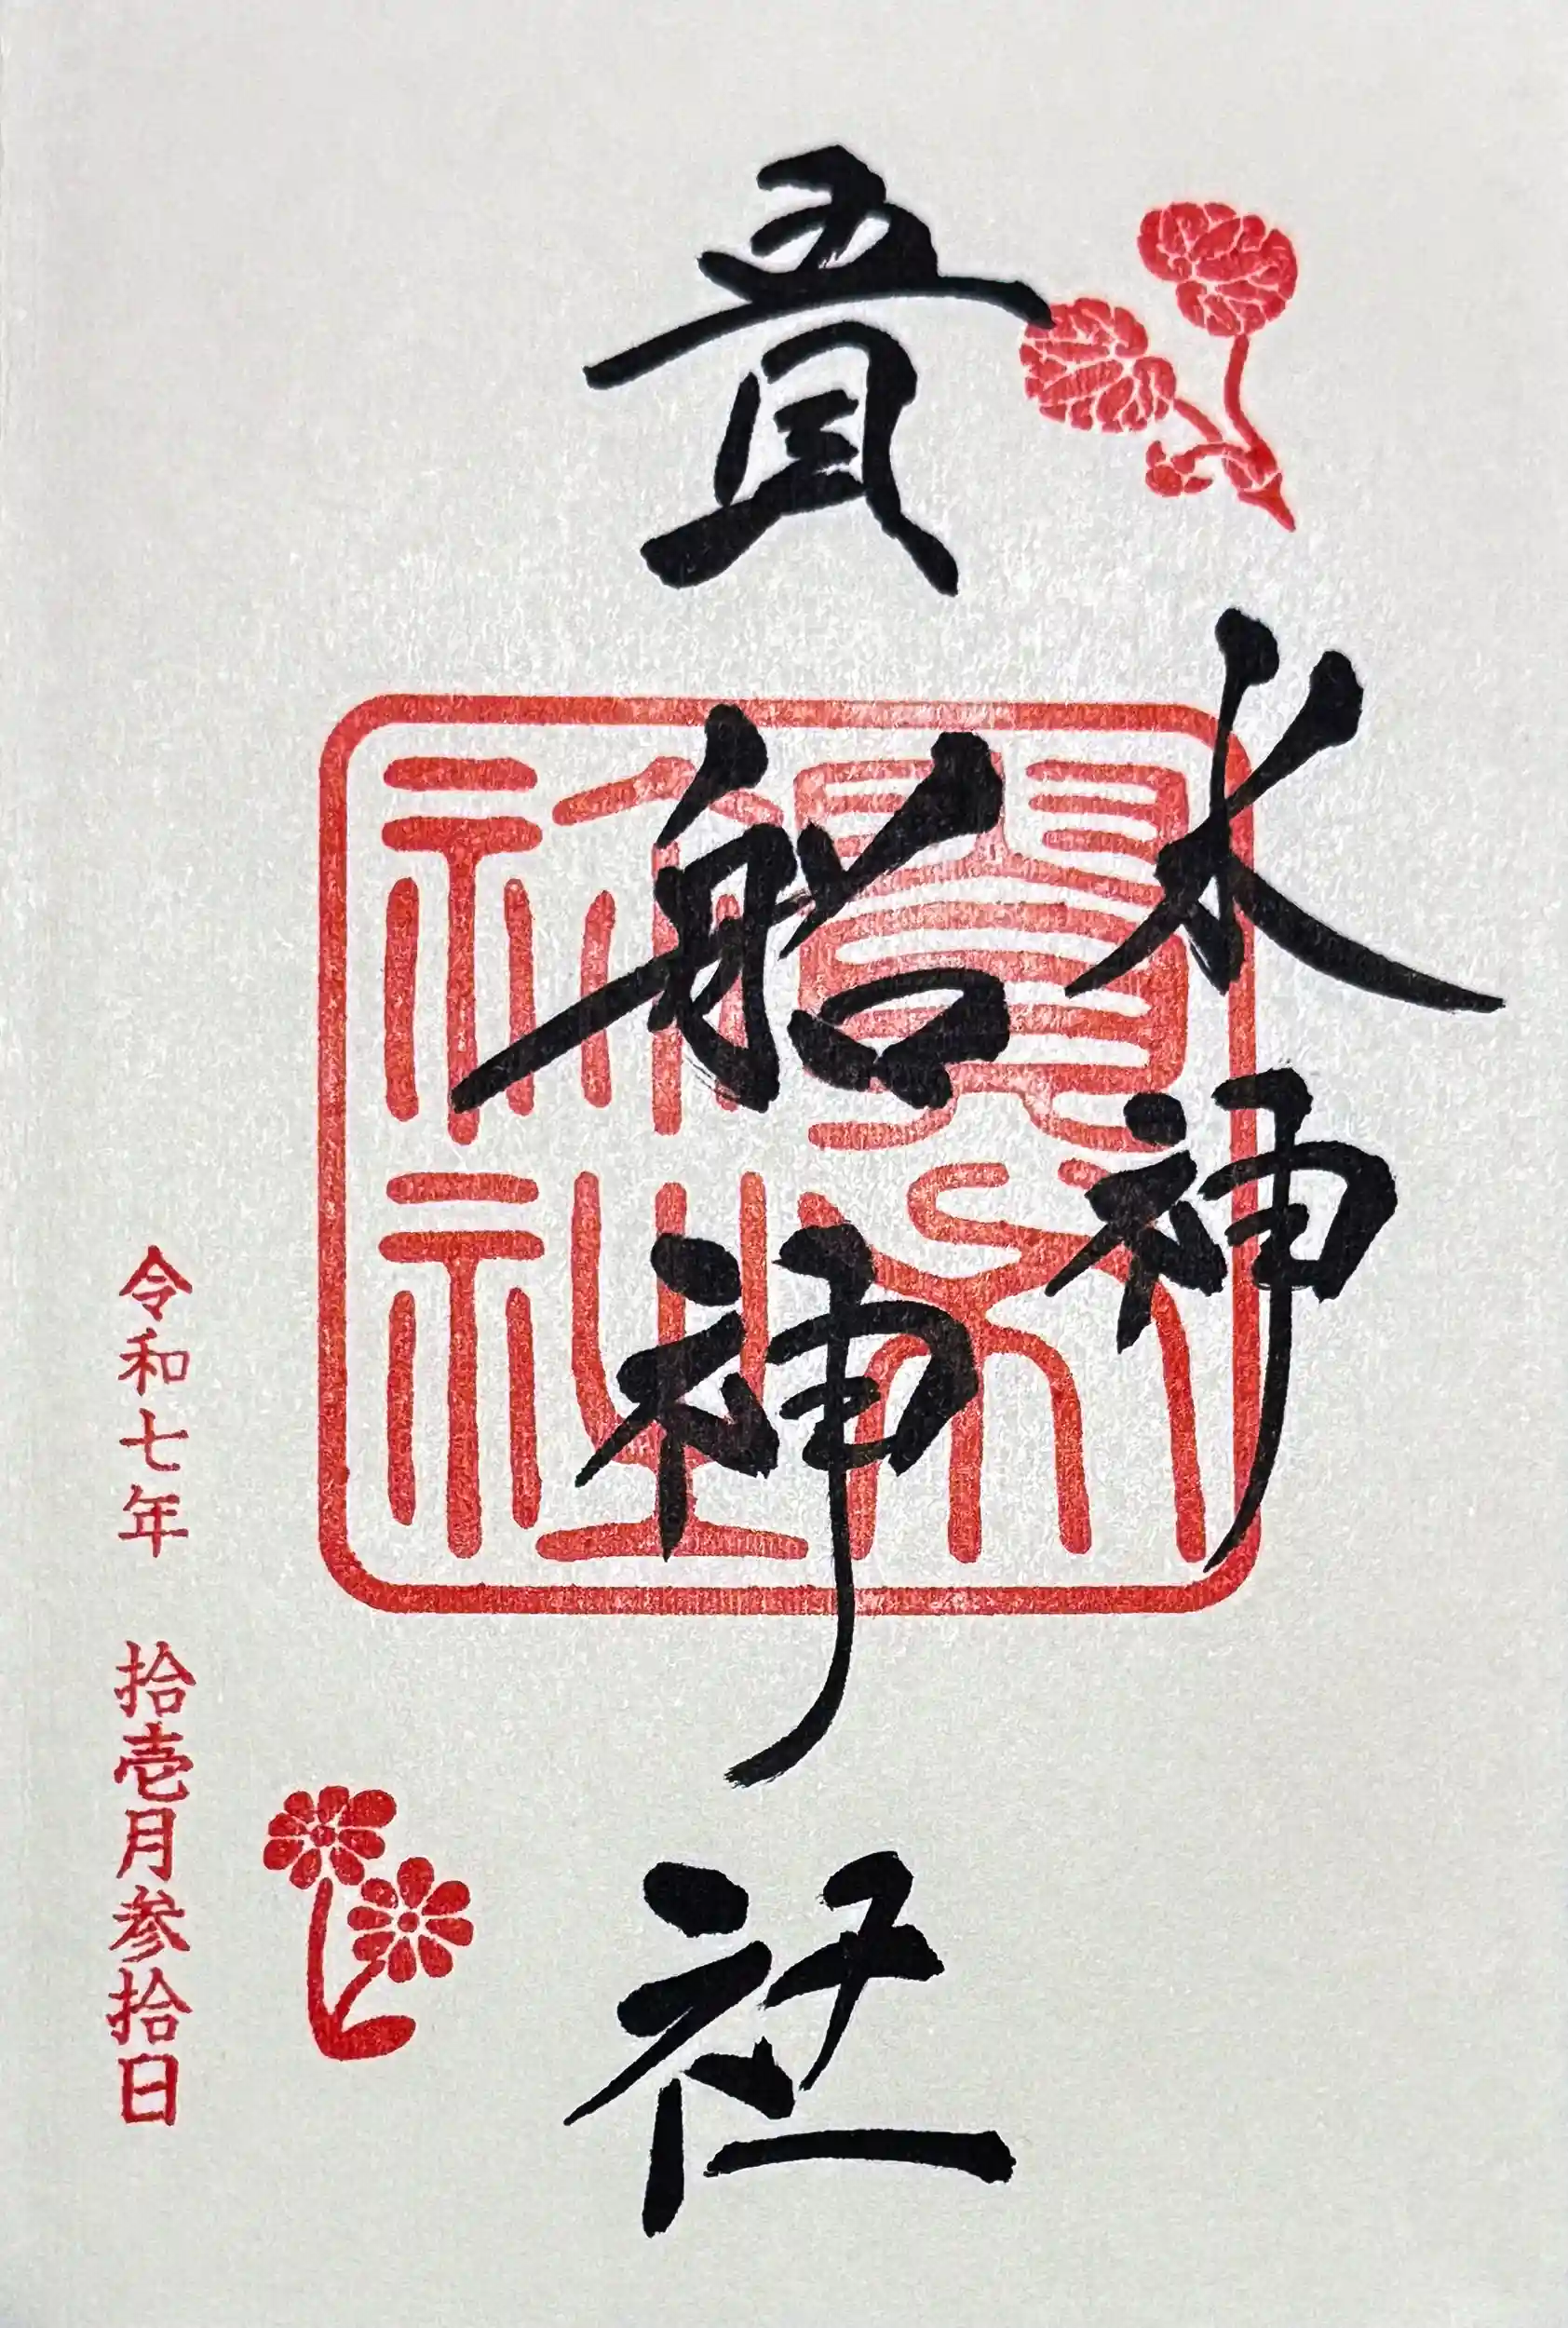 水神
貴船神社
貴布祢社
令和七年 拾壱月参拾日